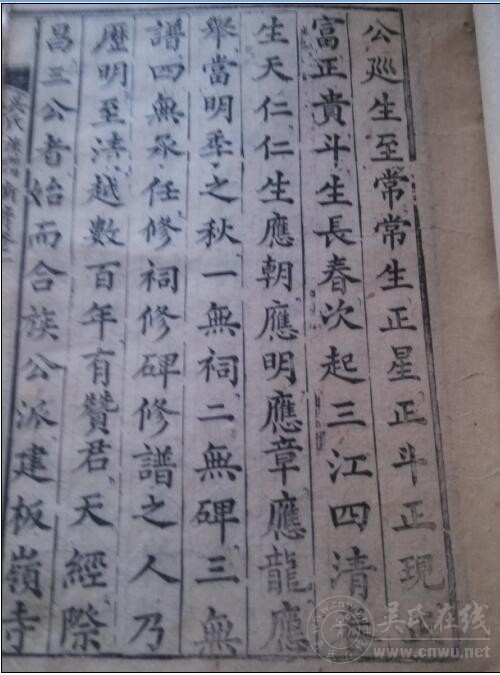 公廵生至常常生正星正斗正現
富正貴斗生長春次起三江四清
生天仁仁生應朝應明應章應龍應
舉當明季之秋一無祠二無碑三無
譜四無永任修祠修碑修譜之人乃
歷明至清越數百年有贊君天經際
昌三公者始而合族公派建板嶺寺
吳氏
吴氏在线
www.cnwu.net